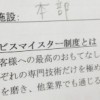 施設: 本部
ビスマイスター制度とは
お客様への最高のおもてなし
ぞれの専門技術だけを極め
を磨き、他業界でも通じる